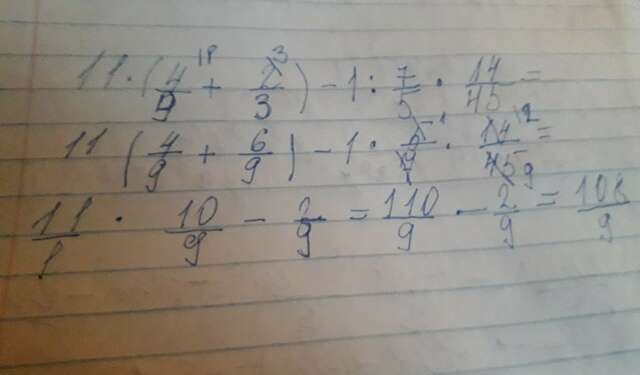 11 · (4/9 + 2/3) - 1 : 7/5 · 14/45 =
11 (4/9 + 6/9) - 1 · 5/7 · 14/45 =
11/1 · 10/9 - 2/9 = 110/9 - 2/9 = 108/9